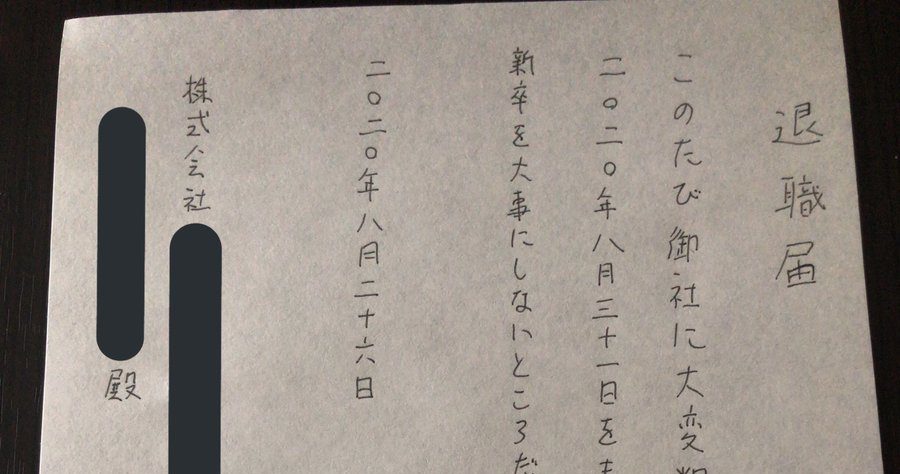 退職届
このたび御社に大変
二〇二〇年八月三十一日を
新卒を大事にしないところだ
二〇二〇年八月二十六日
株式会社
殿